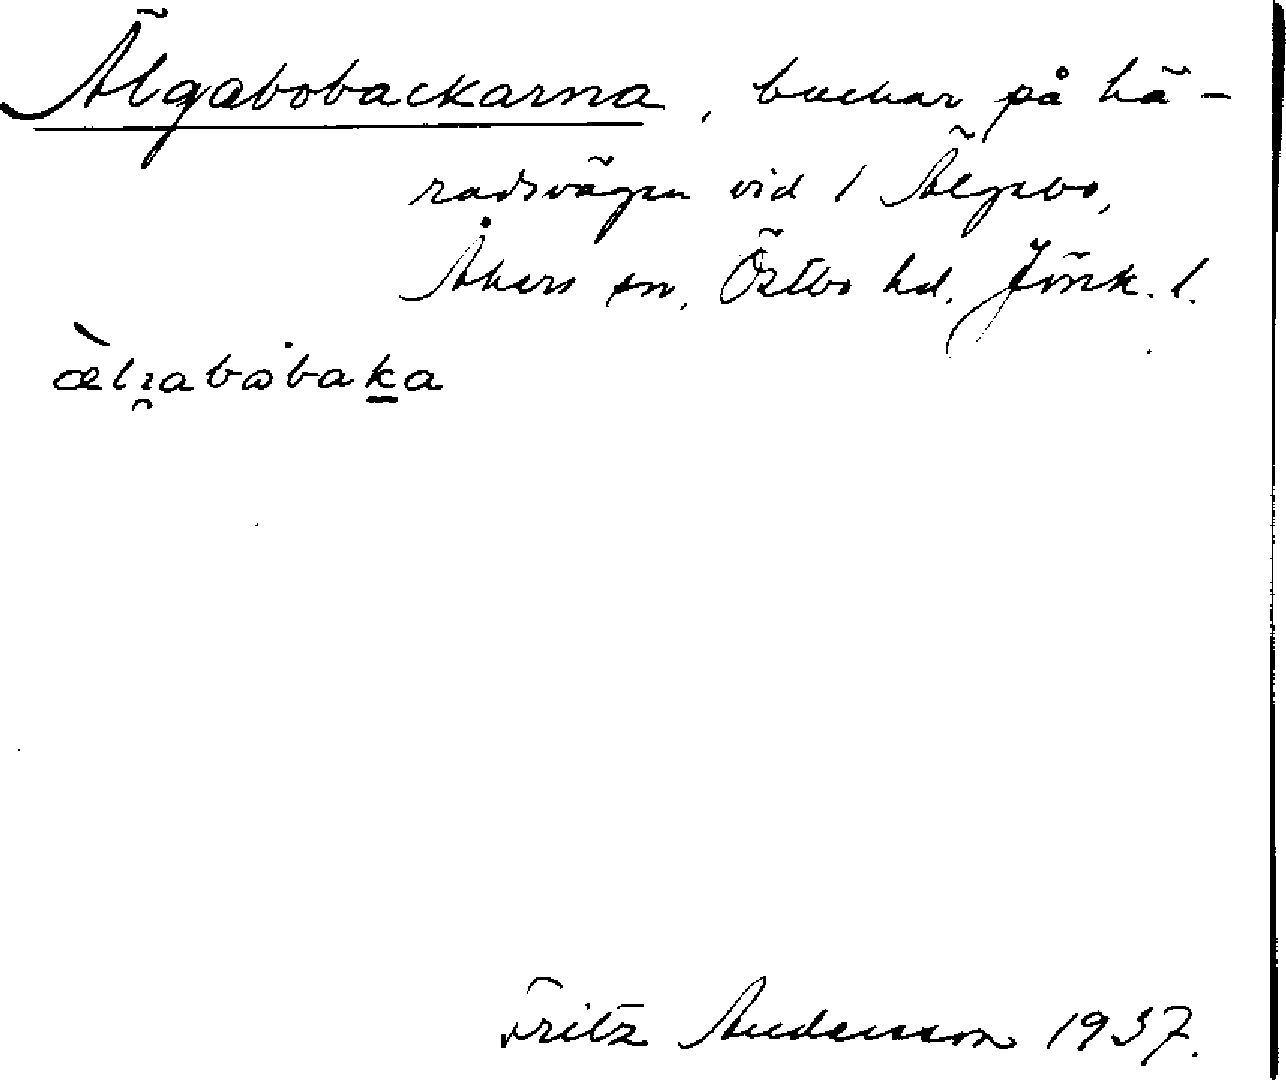 Älgabobackarna, backar på hä-
radsvägen vid 1 Älgabo,
Åkers sn, Östbo hd. Jönk. l.
Fritz Andersson 1937.